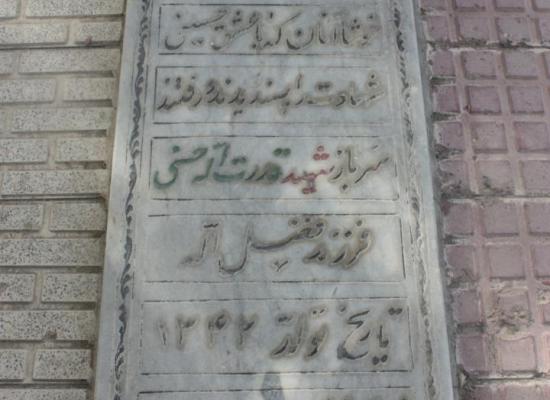 خوشا آنان که با عشق حسینی
شهادت را پسندیدند و رفتند
سرباز شهید قدرت اله حسنی
فرزند فضل اله
تاریخ تولد ۱۳۴۲